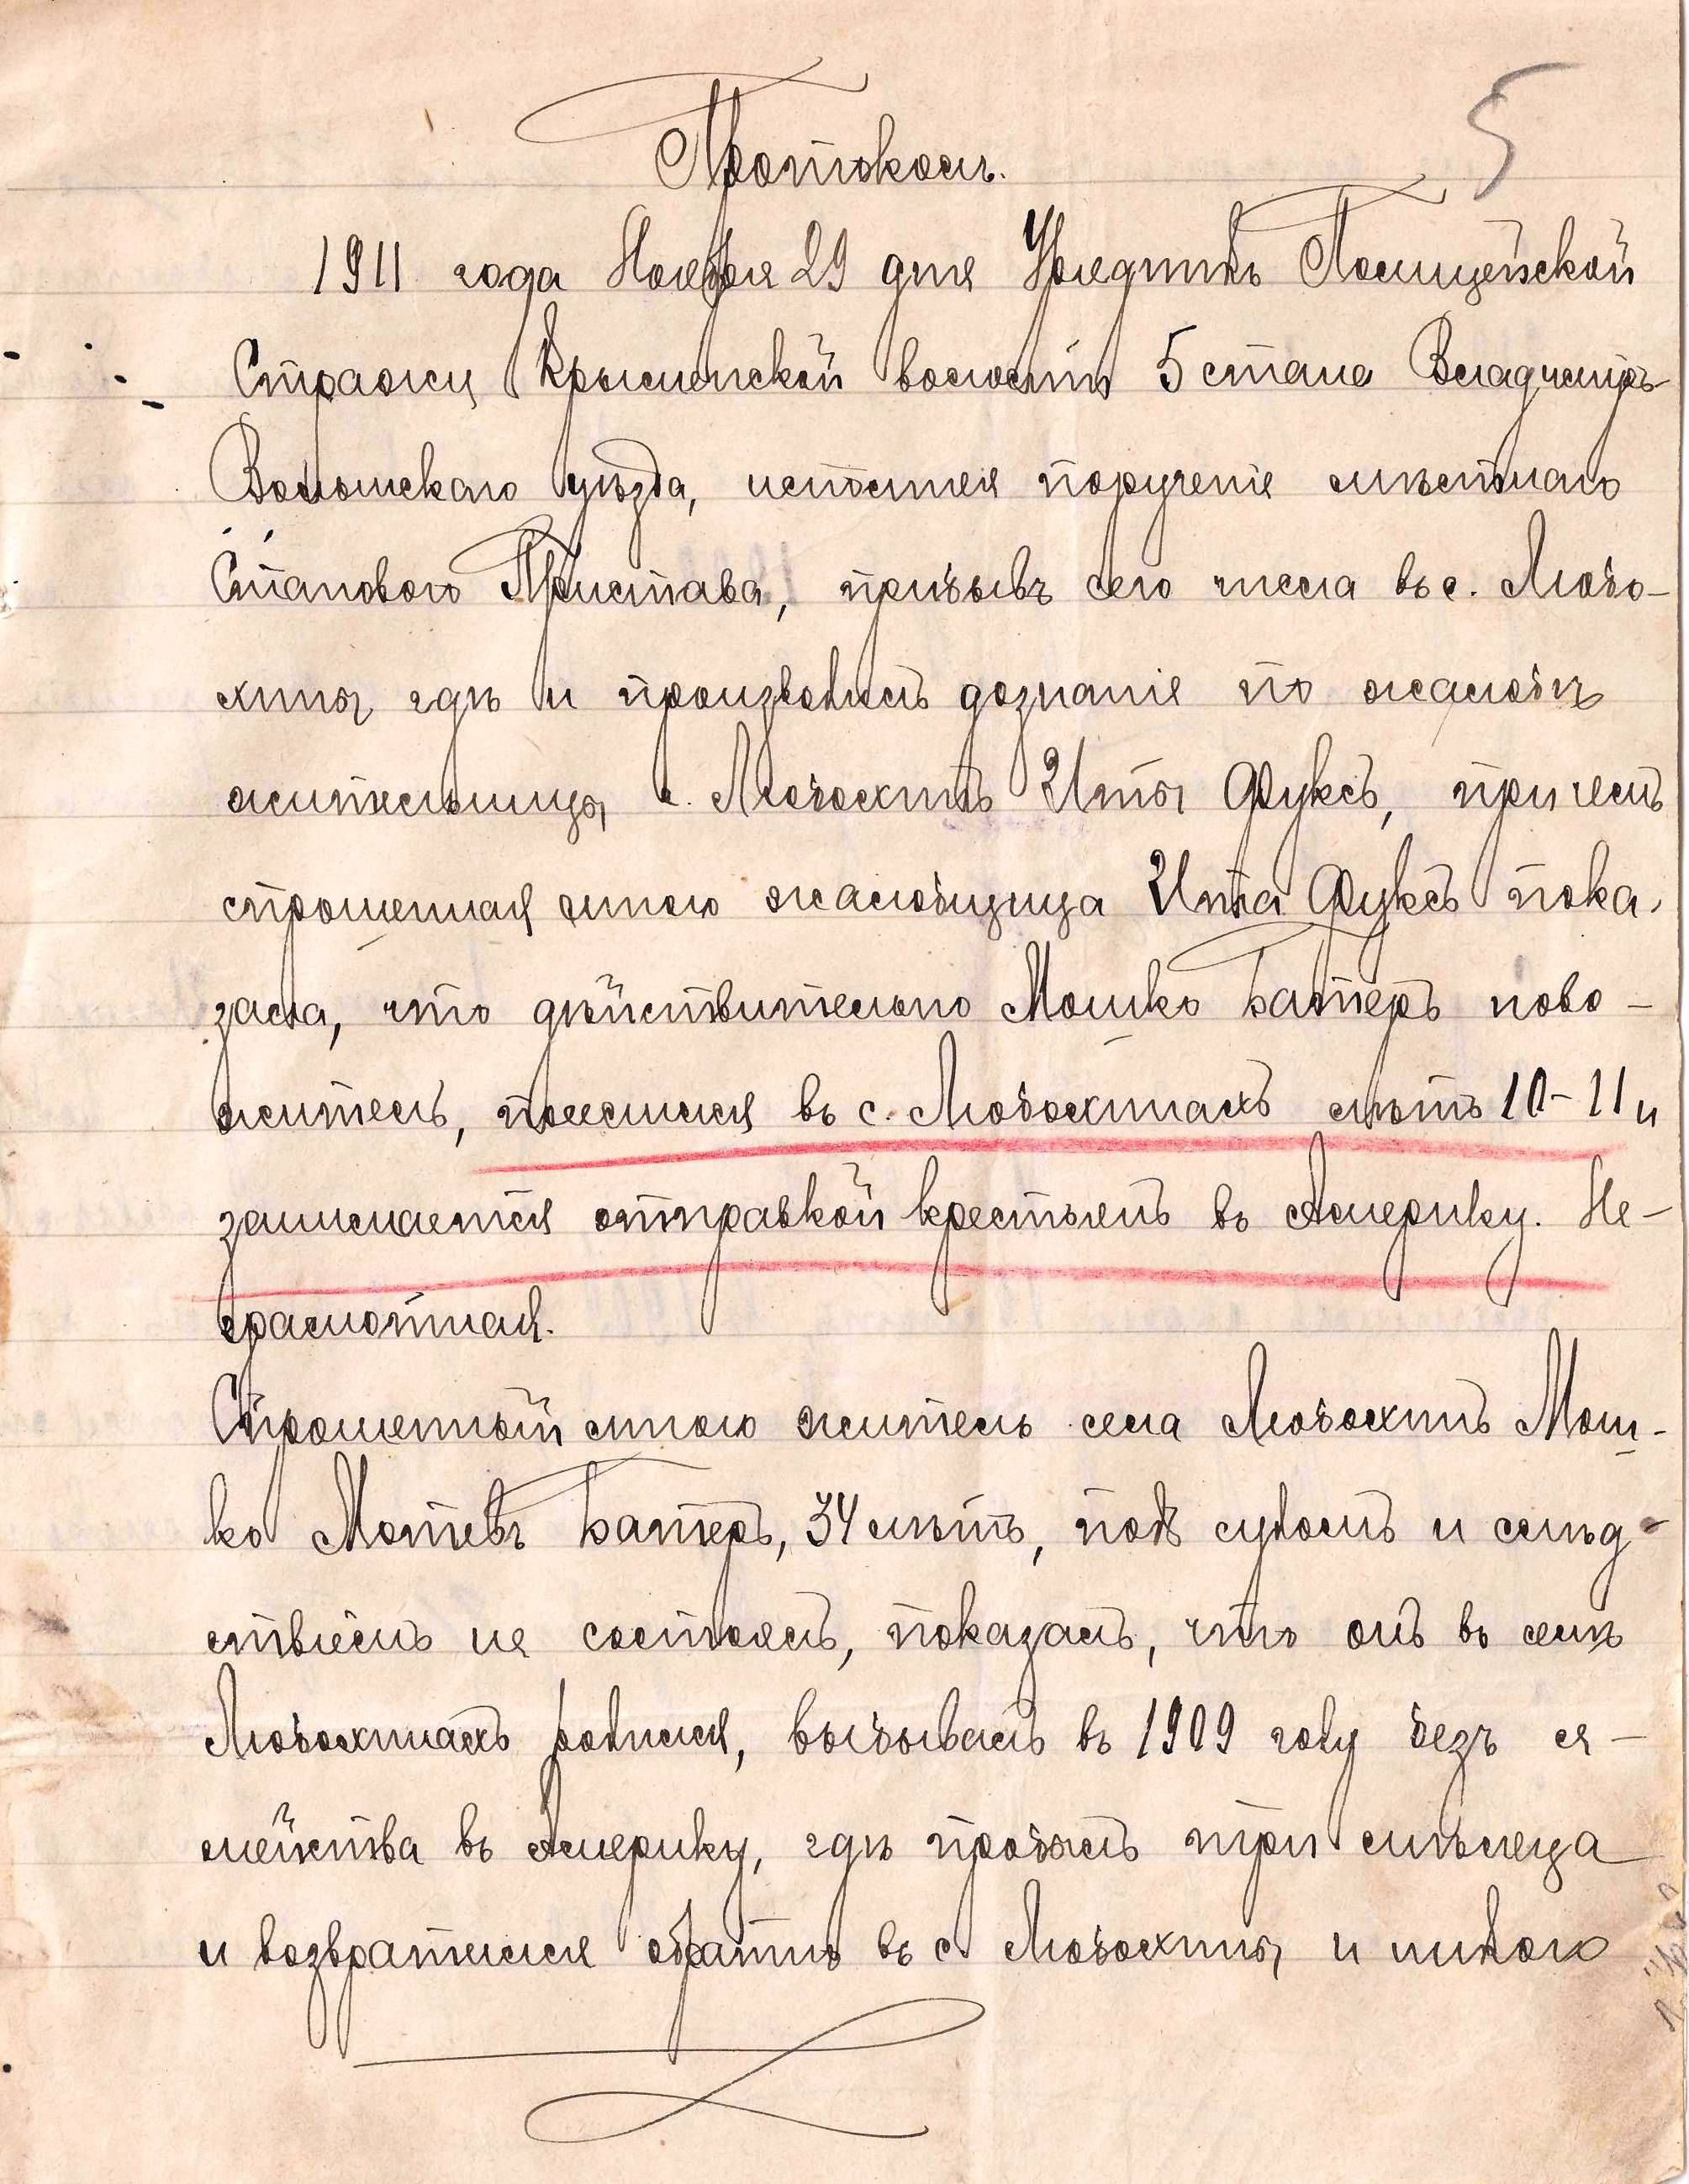 5
Протоколъ.
1911 года Ноября 29 дня Урядникъ Полицейской
Стражи Крымненской волости 5 стана Владимiръ-
Волынскаго уѣзда, исполняя порученiе мѣстнаго
Станового Пристава, прибывъ сего числа въ с. Любо-
хины, гдѣ и производилъ дознанiе по жалобѣ
жительницы с. Любохинъ Иты Фуксъ, при чемъ
спрошенная мною жалобщица Ита Фуксъ пока-
зала, что дѣйствительно Мошко Батеръ ново-
житель, поселился въ с. Любохинахъ лѣтъ 10-11 и
занимается отправкой крестьянъ въ Америку. Не-
грамотная.
Спрошенный мною житель села Любохинъ Мош-
ко Мотевъ Батеръ, 34 лѣтъ, подъ судомъ и слѣд-
ствiемъ не состоялъ, показалъ, что онъ въ селѣ
Любохинахъ родился, выбывалъ въ 1909 году безъ се-
мейства въ Америку, гдѣ пробылъ три мѣсяца
и возвратился обратно въ с. Любохины, и никого